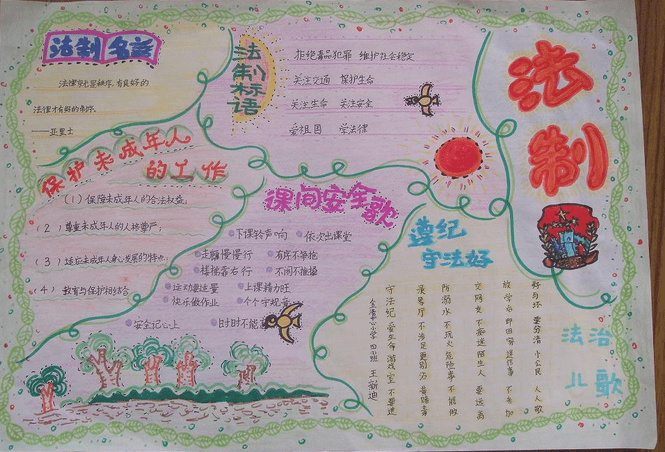 法制名言
法律就是秩序,有良好的
法律才有好的秩序。
——亚里士
法制标语
拒绝毒品犯罪 维护社会稳定
关注交通 保护生命
关注生命 关注安全
爱祖国 学法律
法制
保护未成年人
的工作
(1)保障未成年人的合法权益;
(2)尊重未成年人的人格尊严;
(3)适应未成年人身心发展的特点;
(4)教育与保护相结合
课间安全歌
下课铃声响 依次出课堂
走廊慢慢行 有序不争抢
楼梯靠右行 不闹不推搡
运动要适量 上课精力旺
快乐做作业 个个守规章
安全记心上 时时不能忘
遵纪
守法好
法治
儿歌
好与坏 要分清 小公民 人人敬
放学后 即回家
交网友 不 陌生人 要远离
防溺水 不玩火 危险事 不能做
录像厅 不涉足
守法纪 爱生命 游戏室 不要进
四班 王